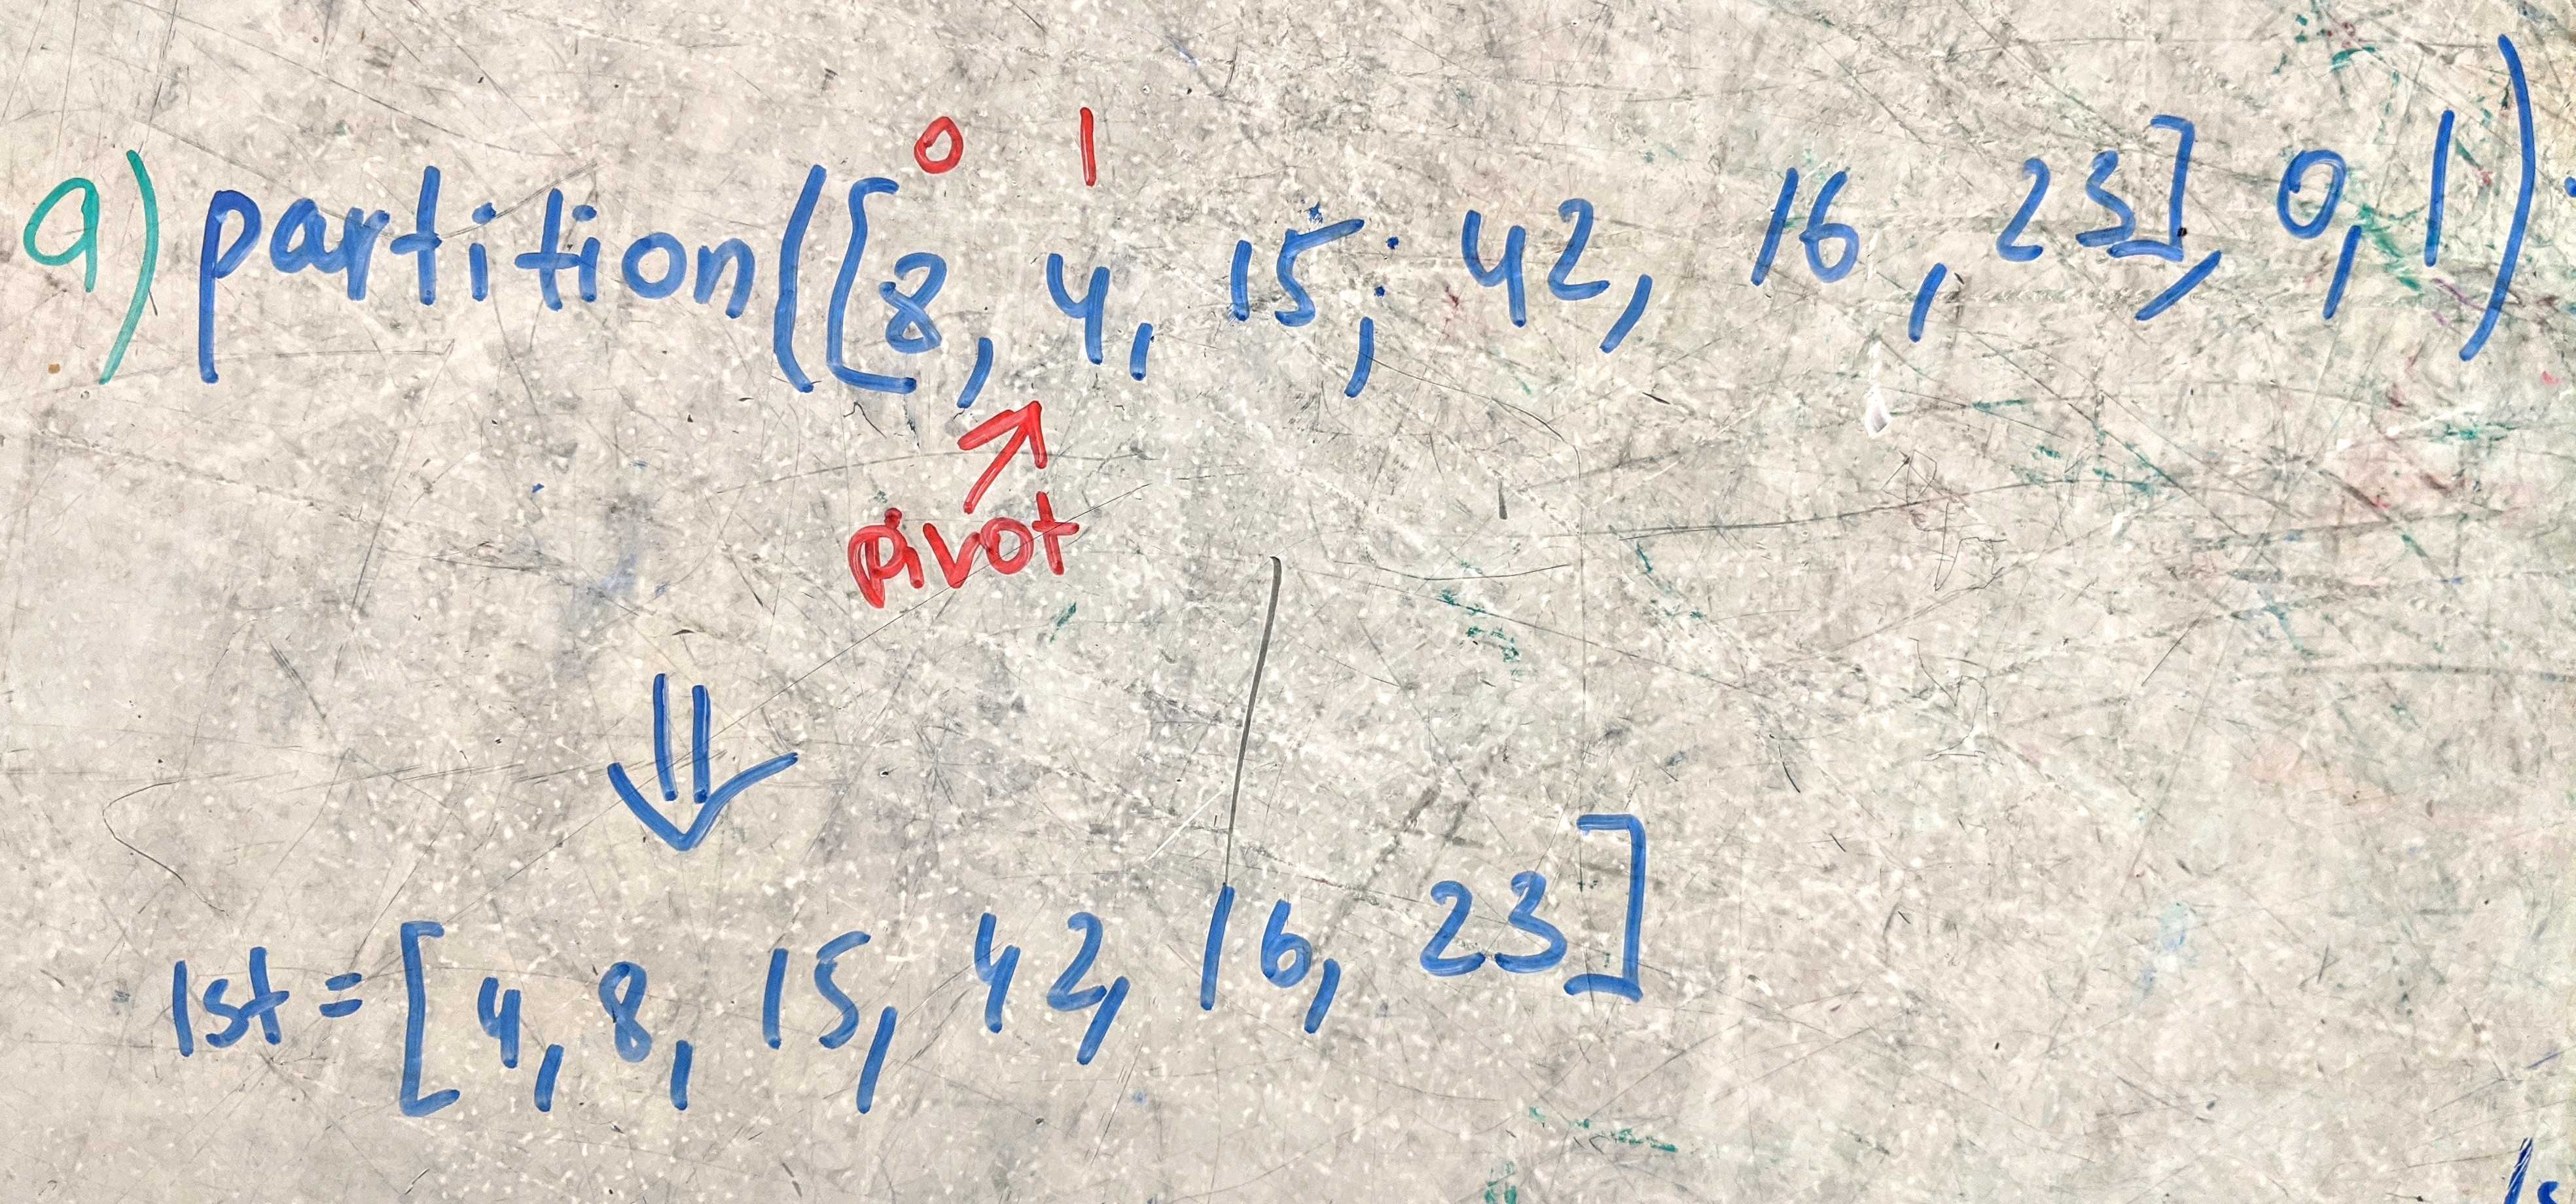 0 1
9) partition([8, 4, 15, 42, 16, 23], 0, 1)
pivot
lst = [4, 8, 15, 42, 16, 23]